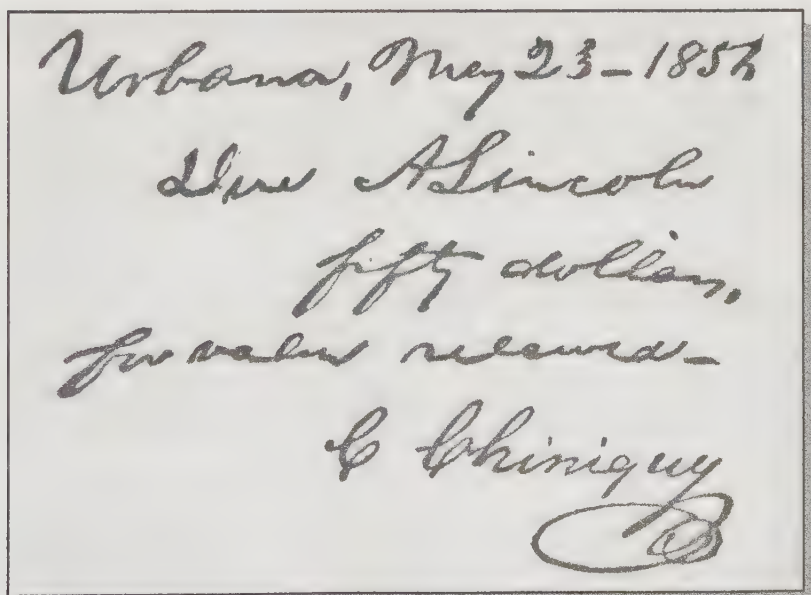 Urbana, May 23 – 1856
Due A Lincoln
fifty dollars,
for value received –
C Chiniquy